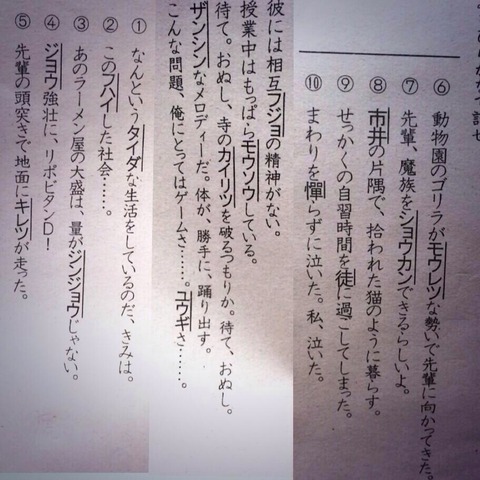 ⑥ 動物園のゴリラがモウレツな勢いで先輩に向かってきた。
⑦ 先輩、魔族をショウカンできるらしいよ。
⑧ 市井の片隅で、拾われた猫のように暮らす。
⑨ せっかくの自習時間を徒に過ごしてしまった。
⑩ まわりを憚らずに泣いた。私、泣いた。
彼には相互フジョの精神がない。
授業中はもっぱらモウソウしている。
待て。おぬし、寺のカイリツを破るつもりか。待て、おぬし。
ザンシンなメロディーだ。体が、勝手に、踊り出す。
こんな問題、俺にとってはゲームさ……。ユウギさ……。
① なんというタイダな生活をしているのだ、きみは。
② このフハイした社会……。
③ あのラーメン屋の大盛は、量がジンジョウじゃない。
④ ジョウ強壮に、リポビタンD！
⑤ 先輩の頭突きで地面にキレツが走った。